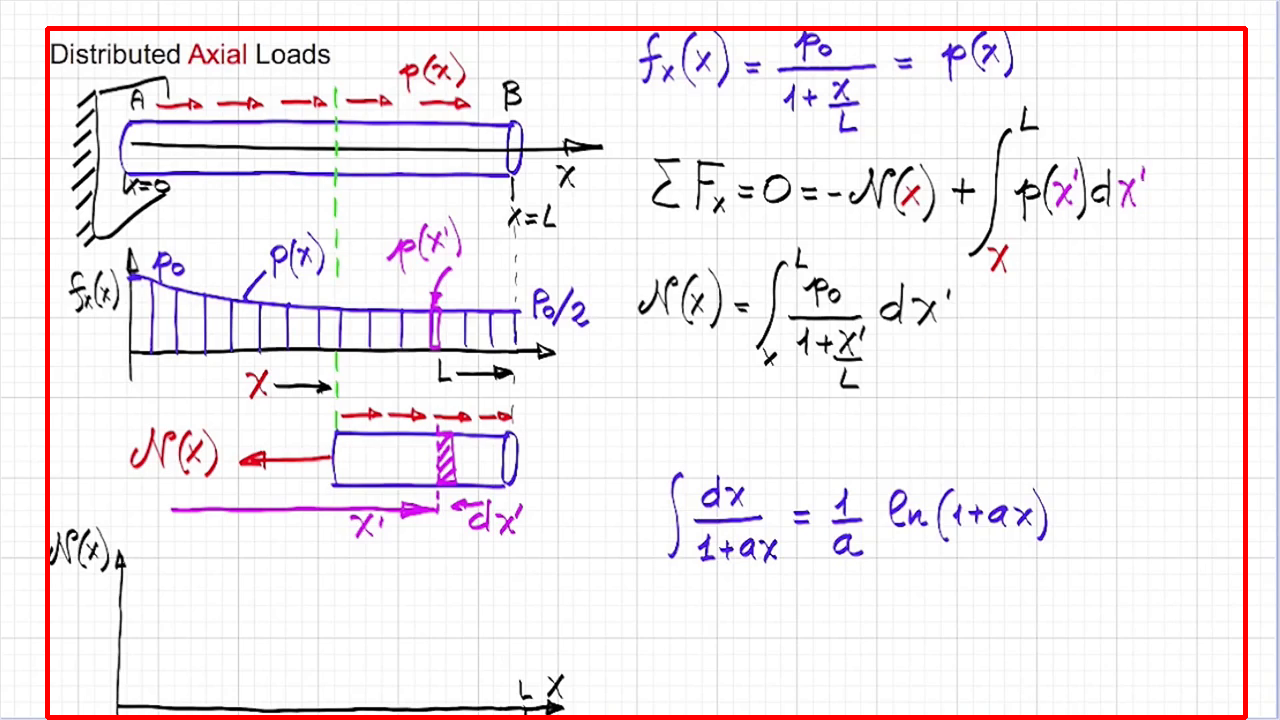 Distributed Axial Loads
p(x)
A
B
x=0
x
x=L
p₀
p(x)
p(x')
fₓ(x)
P₀/2
x
L
N(x)
x'
dx'
N(x)
L
x
fₓ(x) = p₀/(1+x/L) = p(x)
∑Fₓ = 0 = -N(x) + ∫ₓᴸ p(x')dx'
N(x) = ∫ₓᴸ p₀/(1+x'/L) dx'
∫ dx/(1+ax) = 1/a ln(1+ax)